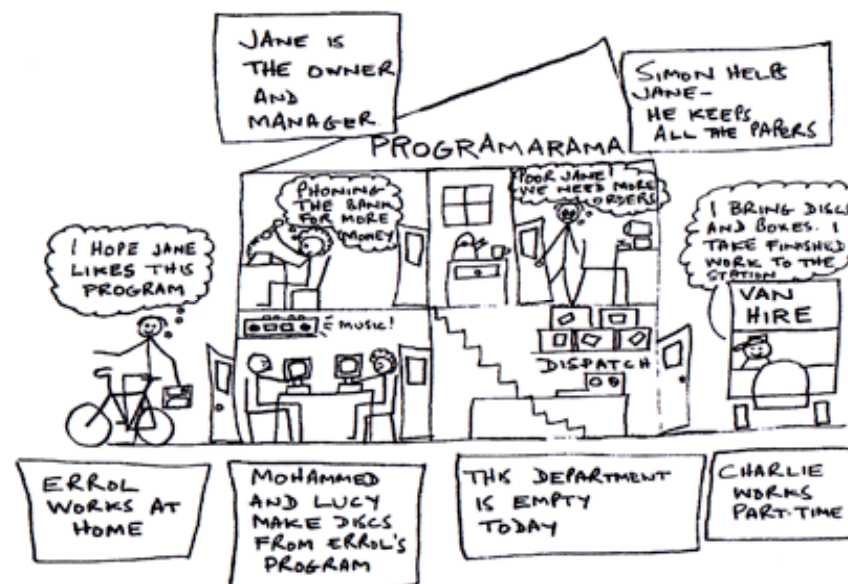 JANE IS
THE OWNER
AND
MANAGER
SIMON HELPS
JANE-
HE KEEPS
ALL THE PAPERS
PROGRAMARAMA
PHONING
THE BANK
FOR MORE
MONEY
POOR JANE!
WE NEED MORE
ORDERS
I HOPE JANE
LIKES THIS
PROGRAM
I BRING DISCS
AND BOXES. I
TAKE FINISHED
WORK TO THE
STATION
VAN
HIRE
MUSIC!
DISPATCH
ERROL
WORKS AT
HOME
MOHAMMED
AND LUCY
MAKE DISCS
FROM ERROL'S
PROGRAM
THIS DEPARTMENT
IS EMPTY
TODAY
CHARLIE
WORKS
PART-TIME